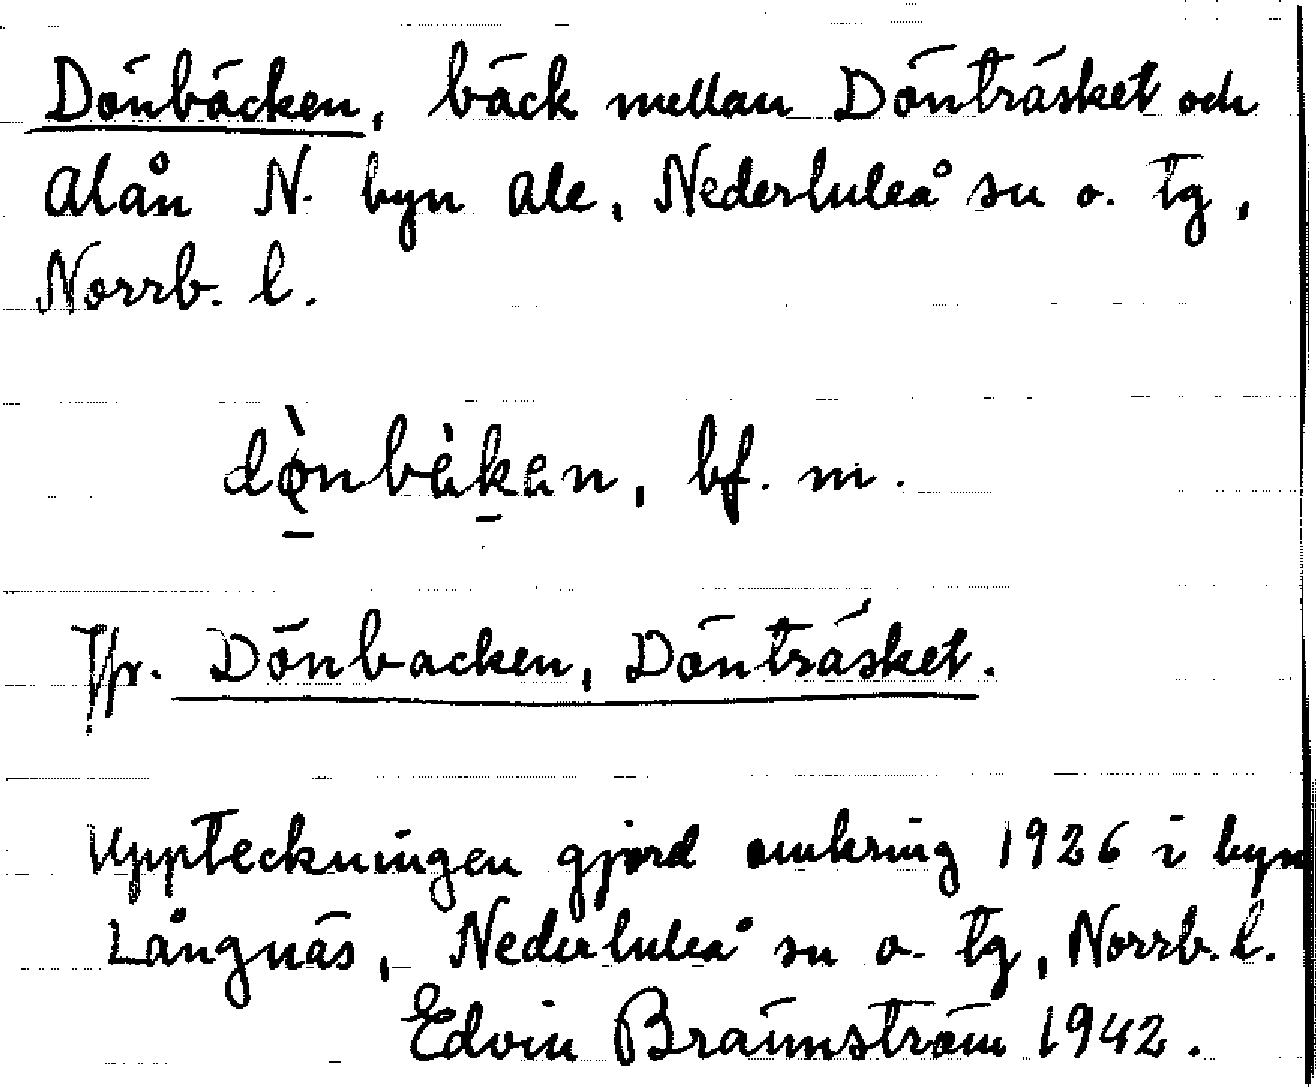 Dönbäcken, bäck mellan Dönträsket och
Alån N. byn Ale, Nederluleå sn o. tg,
Norrb. l.
dö̀nbä̀kan, bf. m.
Jfr. Dönbacken, Dönträsket.
Uppteckningen gjord omkring 1926 i byn
Långnäs, Nederluleå sn o. tg, Norrb. l.
Edvin Brännström 1942.